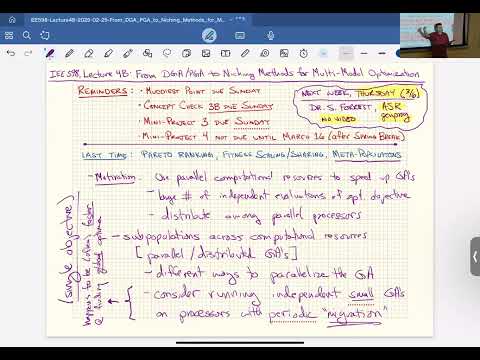 IEE598-Lecture4B-2020-02-25-From_DGA_PGA_to_Niching_Methods_for_M...
IEE 598, Lecture 4B: From DGA/PGA to Niching Methods for Multi-Modal Optimization
REMINDERS:
• MUDDIEST POINT DUE SUNDAY
• CONCEPT CHECK 3B DUE SUNDAY
• MINI-PROJECT 3 DUE SUNDAY
• MINI-PROJECT 4 NOT DUE UNTIL MARCH 16 (AFTER SPRING BREAK)
NEXT WEEK, THURSDAY (3/6)
DR. S. FORREST, ASR
NO VIDEO
LAST TIME: PARETO RANKING, FITNESS SCALING/SHARING, META-POPULATIONS
- Motivation: Use parallel computational resources to speed up GA's
- large # of independent evaluations of opt. objective
- distribute among parallel processors
- subpopulations across computational resources
[parallel/distributed GA's]
- different ways to parallelize the GA
- consider running independent small GA's
on processors with periodic "migration"
(single objective)
happens to be (often) faster
@ finding global optima